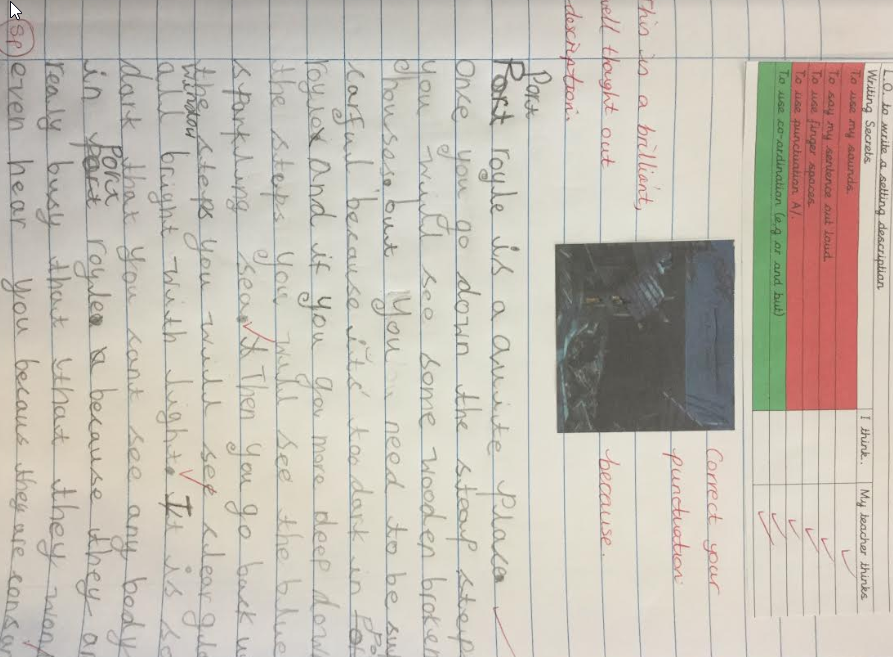 L.O. To write a setting description
Writing Secrets
I think.
My teacher thinks
To use my sounds
To say my sentence out loud
To use finger spaces
To use punctuation A/.
To use co-ordination (e.g or and but)
Correct your
punctuation.
because.
This is a brilliant,
well thought out
description.
Port
Port royle is a quite place
Once you go down the steap step
you will see some wooden broken
houses but you need to be su
carful because it's too dark in
royle and if you go more deep down
the steps you will see the blue
sparkling sea. Then you go back u
the steps you will see clear
window
all bright with lights It is so
dark that you cant see any body
Port
in royle because they ar
realy busy that that they won
sp
even hear you becaus they are